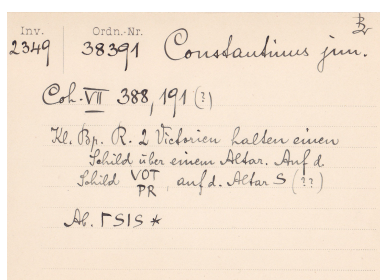 Inv. Ordn.-Nr. Br
2349 38391 Constantinus jun.
Coh. VII 388, 191 (?)
Kl. Br. R. 2 Victorien halten einen
Schild über einem Altar. Auf d.
Schild VOT
PR, auf d. Altar S (??)
Ab. ΓSIS *